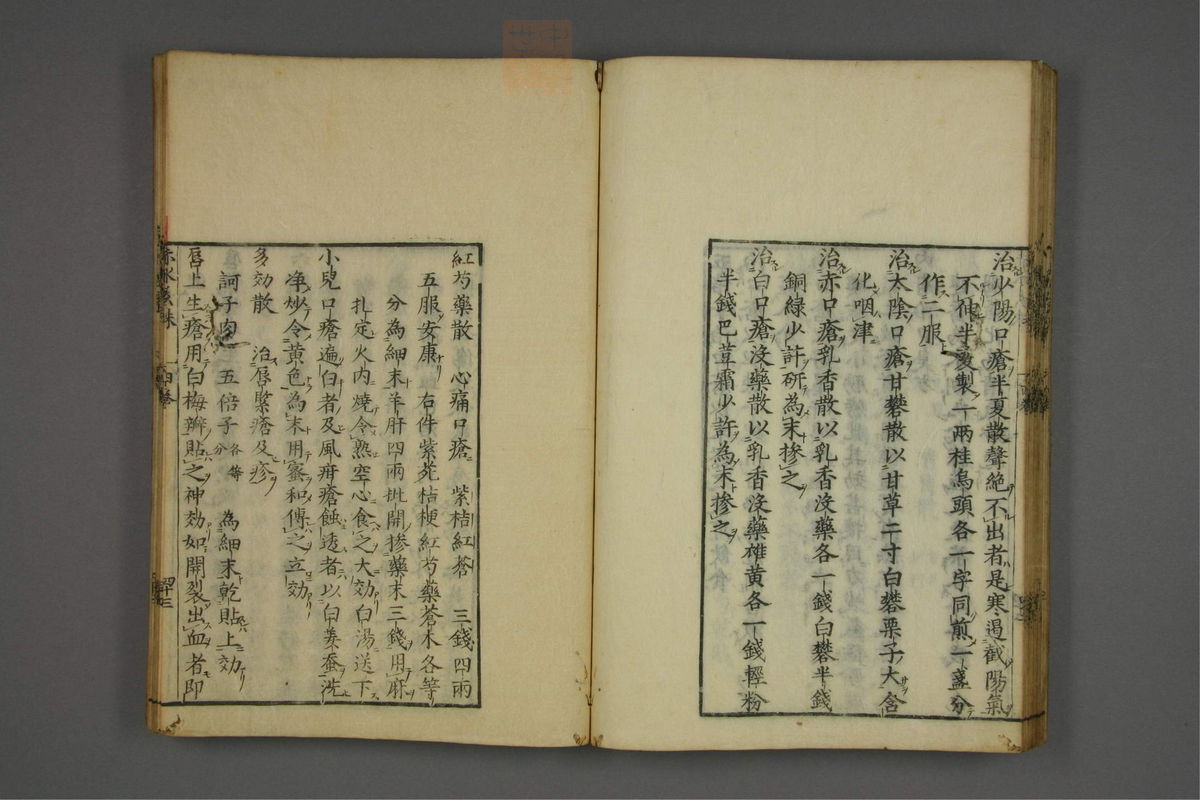 治少陽口瘡半夏散聲絕不出者是寒遏截陽氣
不伸半夏製一兩桂烏頭各一字同煎一盞分
作二服
治太陰口瘡甘礬散以甘草二寸白礬栗子大含
化咽津
治赤口瘡乳香散以乳香沒藥各一錢白礬半錢
銅綠少許研為末摻之
治白口瘡沒藥散以乳香沒藥雄黃各一錢輕粉
半錢巴荳霜少許為末摻之
紅芍藥散 心痛口瘡 紫桔紅蒼 三錢四兩
五服安康 右件紫菀桔梗紅芍藥蒼朮各等
分為細末羊肝四兩批開摻藥末三錢用麻
扎定火內燒令熟空心食之大効白湯送下
小兒口瘡遍白者及風疳瘡蝕透者以白姜蚕洗
净炒令黃色為末用蜜和傅之立効
多効散 治唇緊瘡及疹
訶子肉 五倍子 各等分 為細末乾貼上効
唇上生瘡用白梅瓣貼之神効如開裂出血者即
四十三